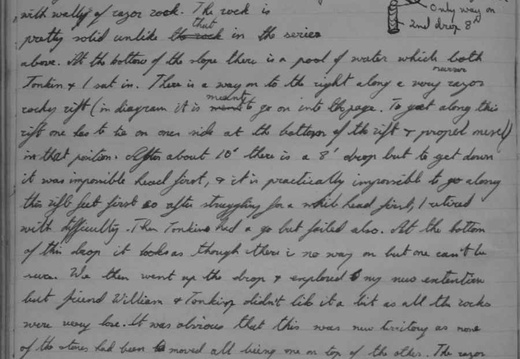 with walls of razor rock. The rock is
pretty solid unlike that in the series
above. At the bottom of the slope there is a pool of water which both
Tonkin & I sat in. There is a way on to the right along a very narrow razor
rocky rift (in diagram it is meant to go on into the page. To get along this
rift one has to lie on ones side at the bottom of the rift & propel myself
in that position. After about 10' there is a 8' drop but to get down
it was impossible head first, & it is practically impossible to go along
this rift feet first so after struggling for a while head first, I retired
with difficulty. Then Tonkin had a go but failed also. At the bottom
of this drop it looks as though there is no way on but one can't be
sure. We then went up the drop & explored my new extention
but friend William & Tonking didn't like it a bit as all the rocks
were very lose. It was obvious that this was new territory as none
of the stones had been moved all being one on top of the other. The razor
Only way on
2nd drop 8'